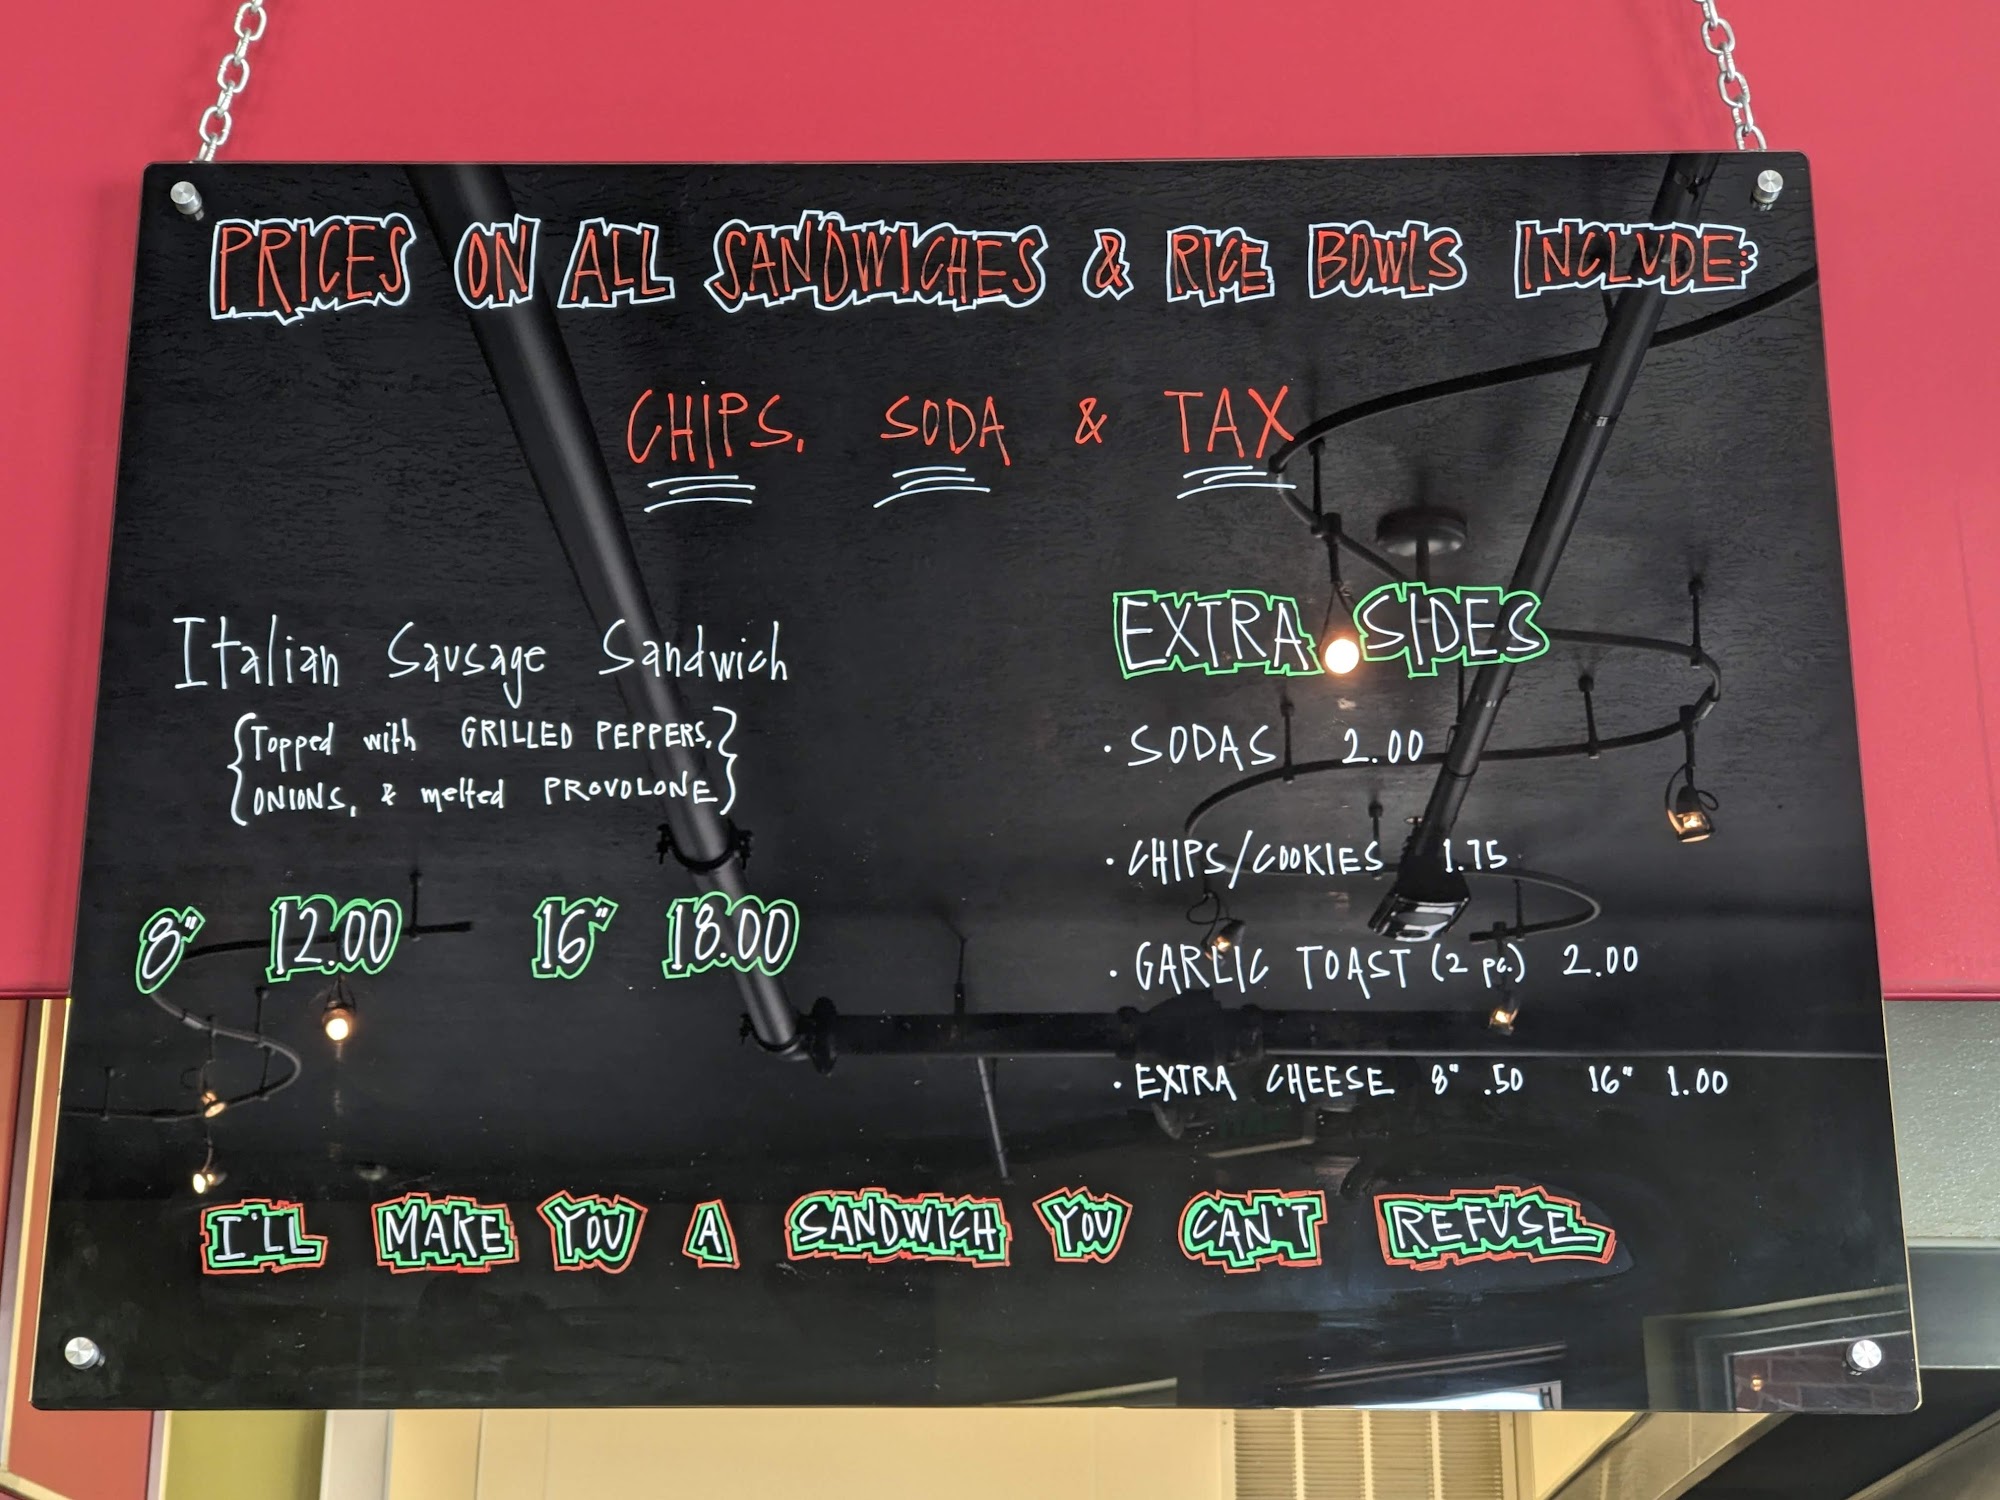 PRICES ON ALL SANDWICHES & RICE BOWLS INCLUDE:
CHIPS, SODA & TAX
Italian Sausage Sandwich
{Topped with GRILLED PEPPERS,
ONIONS, & melted PROVOLONE}
8" 12.00 16" 18.00
EXTRA SIDES
· SODAS 2.00
· CHIPS/COOKIES 1.75
· GARLIC TOAST (2 pc.) 2.00
· EXTRA CHEESE 8" .50 16" 1.00
I'LL MAKE YOU A SANDWICH YOU CAN'T REFUSE